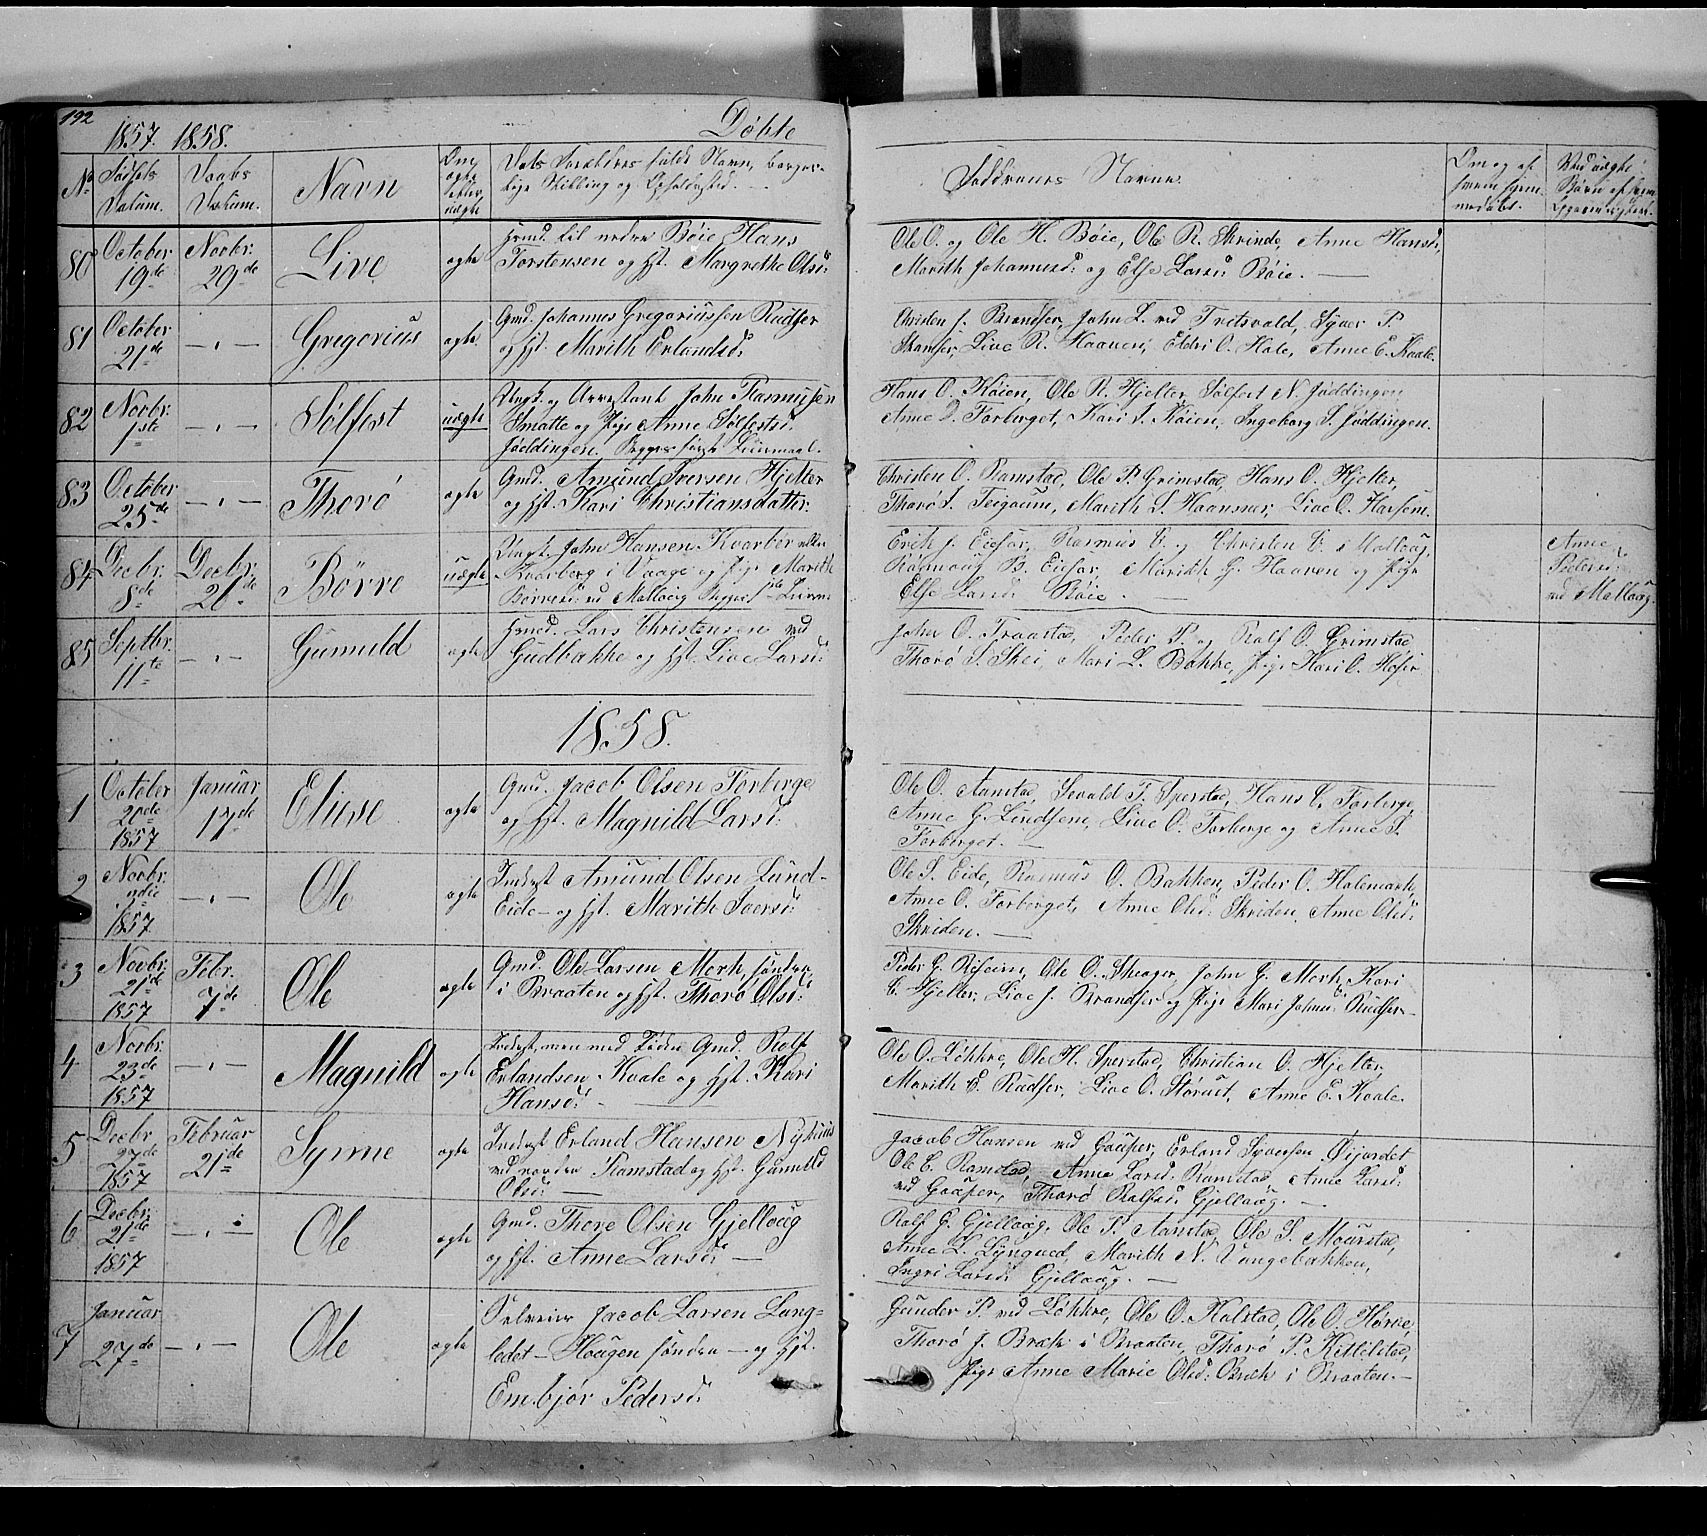 192
1857. 1858.
Døbte
No
Fødsels
Datum.
Daabs
Datum.
Navn
Om
ægte
eller
uægte
Dets Forældres fulde Navn, borger-
lige Stilling og Opholdssted.
Faddernes Navne.
Om og af
hvem hjem-
medøbt.
Ved uægte
Børn af hvem
80
October
19de
Novbr.
29de
Live
ægte
til nedre Bøie Hans
Torstensen og Hst. Margrethe Olsd:
Ole O. og Ole H. Bøie, Ole R. Skrinde, Anne Hansd:,
Marith Johannesd: og Else Larsd: Bøie. —
81
October
21de
— „ —
Gregorius
ægte
Gmd. Johannes Gregoriussen Rudser
og Hst. Marith Erlandsd:
Christen J. Brandser, John L. ved Fritsvold, Syver P.
Skandser, Live R. Haaven, Eldri O. Hole, Anne E. Kvale.
82
Novbr.
1ste
— „ —
Sølfest
uægte
Ungk. og Arrestant John Rasmusen
Smatte og Pige Anne Sølfestsd:
Jøddingen. Begges første Leiermaal.
Hans O. Køien, Ole R. Hjelter, Sølfest N. Jøddingen
Anne O. Forberget, Kari I. Køien, Ingeborg S. Jøddingen.
83
October
25de
— „ —
Thorø
ægte
Gmd. Amund Iversen Hjelter
og Hst. Kari Christiansdatter.
Christen O. Ramstad, Ole P. Grimstad, Hans O. Hjelter,
Thorø I. Teigoum, Marith S. Haansnar, Live O. Harsem.
84
Decbr.
8de
Decbr.
26de
Børre
uægte
Ungk. John Hansen Kvarber eller
Kvarberg i Vaage og Pige Marith
Børresd: ved Mollaag Begges 1ste Leierm:
Erich J. Eidfar, Rasmus C. og Christen C. i Mollaag,
Ragnaug B. Eidfar, Marith G. Haaven og Pige
Else Larsd: Bøie. —
Anne
Pedersd:
ved Mollaag.
85
Septbr.
11te
— „ —
Gunnild
ægte
Lars Christensen ved
Gudbakke og Hst. Live Larsd:
John O. Fraastad, Peder P. og Rolf O. Grimstad,
Thorø I. Skei, Mari L. Bakke, Pige Kari O. Høfer
1858.
1
October
20de
1857
Januar
17de
Eliese
ægte
Gmd. Jacob Olsen Forberge
og Hst. Magnild Larsd:
Ole O. Aanstad, Sevald T. Sperstad, Hans C. Forberge,
Anne G. Lindsem, Live O. Forberge og Anne S.
Forberget. —
2
Novbr.
1857
— „ —
Ole
ægte
Inderst Amund Olsen Lund-
Eide — og Hst. Marith Iversd:
Ole S. Eide, Rasmus O. Bakken, Peder O. Holemark,
Anne O. Forberget, Anne Olsd: Skriden, Anne Olsd:
Skriden. —
3
Novbr.
21de
1857
Febr.
7de
Ole
ægte
Gmd. Ole Larsen Mork, søndre,
i Braaten og Hst. Thorø Olsd:
Peder G. Risheim, Ole O. Skeager, John G. Mork, Kari
C. Hjelter, Live J. Brandser og Pige Mari Johnsd: Rudser —
4
Novbr.
23de
1857
— „ —
Magnild
ægte
Inderst, men med Føder Gmd. Rolf
Erlandsen Kvale og Hst. Kari
Hansd:
Ole O. Løkkre, Ole H. Sperstad, Christian O. Hjelter,
Marith E. Rudser, Live O. Størust, Anne E. Kvale.
5
Decbr.
27de
1857
Februar
21de
Synne
ægte
Inderst Erland Hansen Nyhuus
ved nordre Ramstad og Hst. Gunnild
Olsd: —
Jacob Hansen ved Gaaper, Erland Ivarsen Øijordet
Ole C. Ramstad, Anne Larsd: Ramstad, Anne Larsd:
ved Gaaper, Thorø Rolfsd: Gjellaug. —
6
Decbr.
21de
1857
— „ —
Ole
ægte
Gmd. Thore Olsen Gjellaug
og Hst. Anne Larsd: —
Rolf G. Gjellaug, Ole P. Aanstad, Ole S. Mourstad,
Anne L. Lyngved, Marith N. Vangebakken,
Ingri Larsd: Gjellaug. —
7
Januar
27de
— „ —
Ole
ægte
Selveier Jacob Larsen Lang-
ledet — Haugen søndre — og Hst.
Embjør Pedersd:
Gunder P. ved Løkkre, Ole O. Kolstad, Ole O. Horve,
Thorø J. Bræk i Braaten, Thorø P. Kittilstad,
Pige Anne Marie Olsd: Bræk i Braaten. —